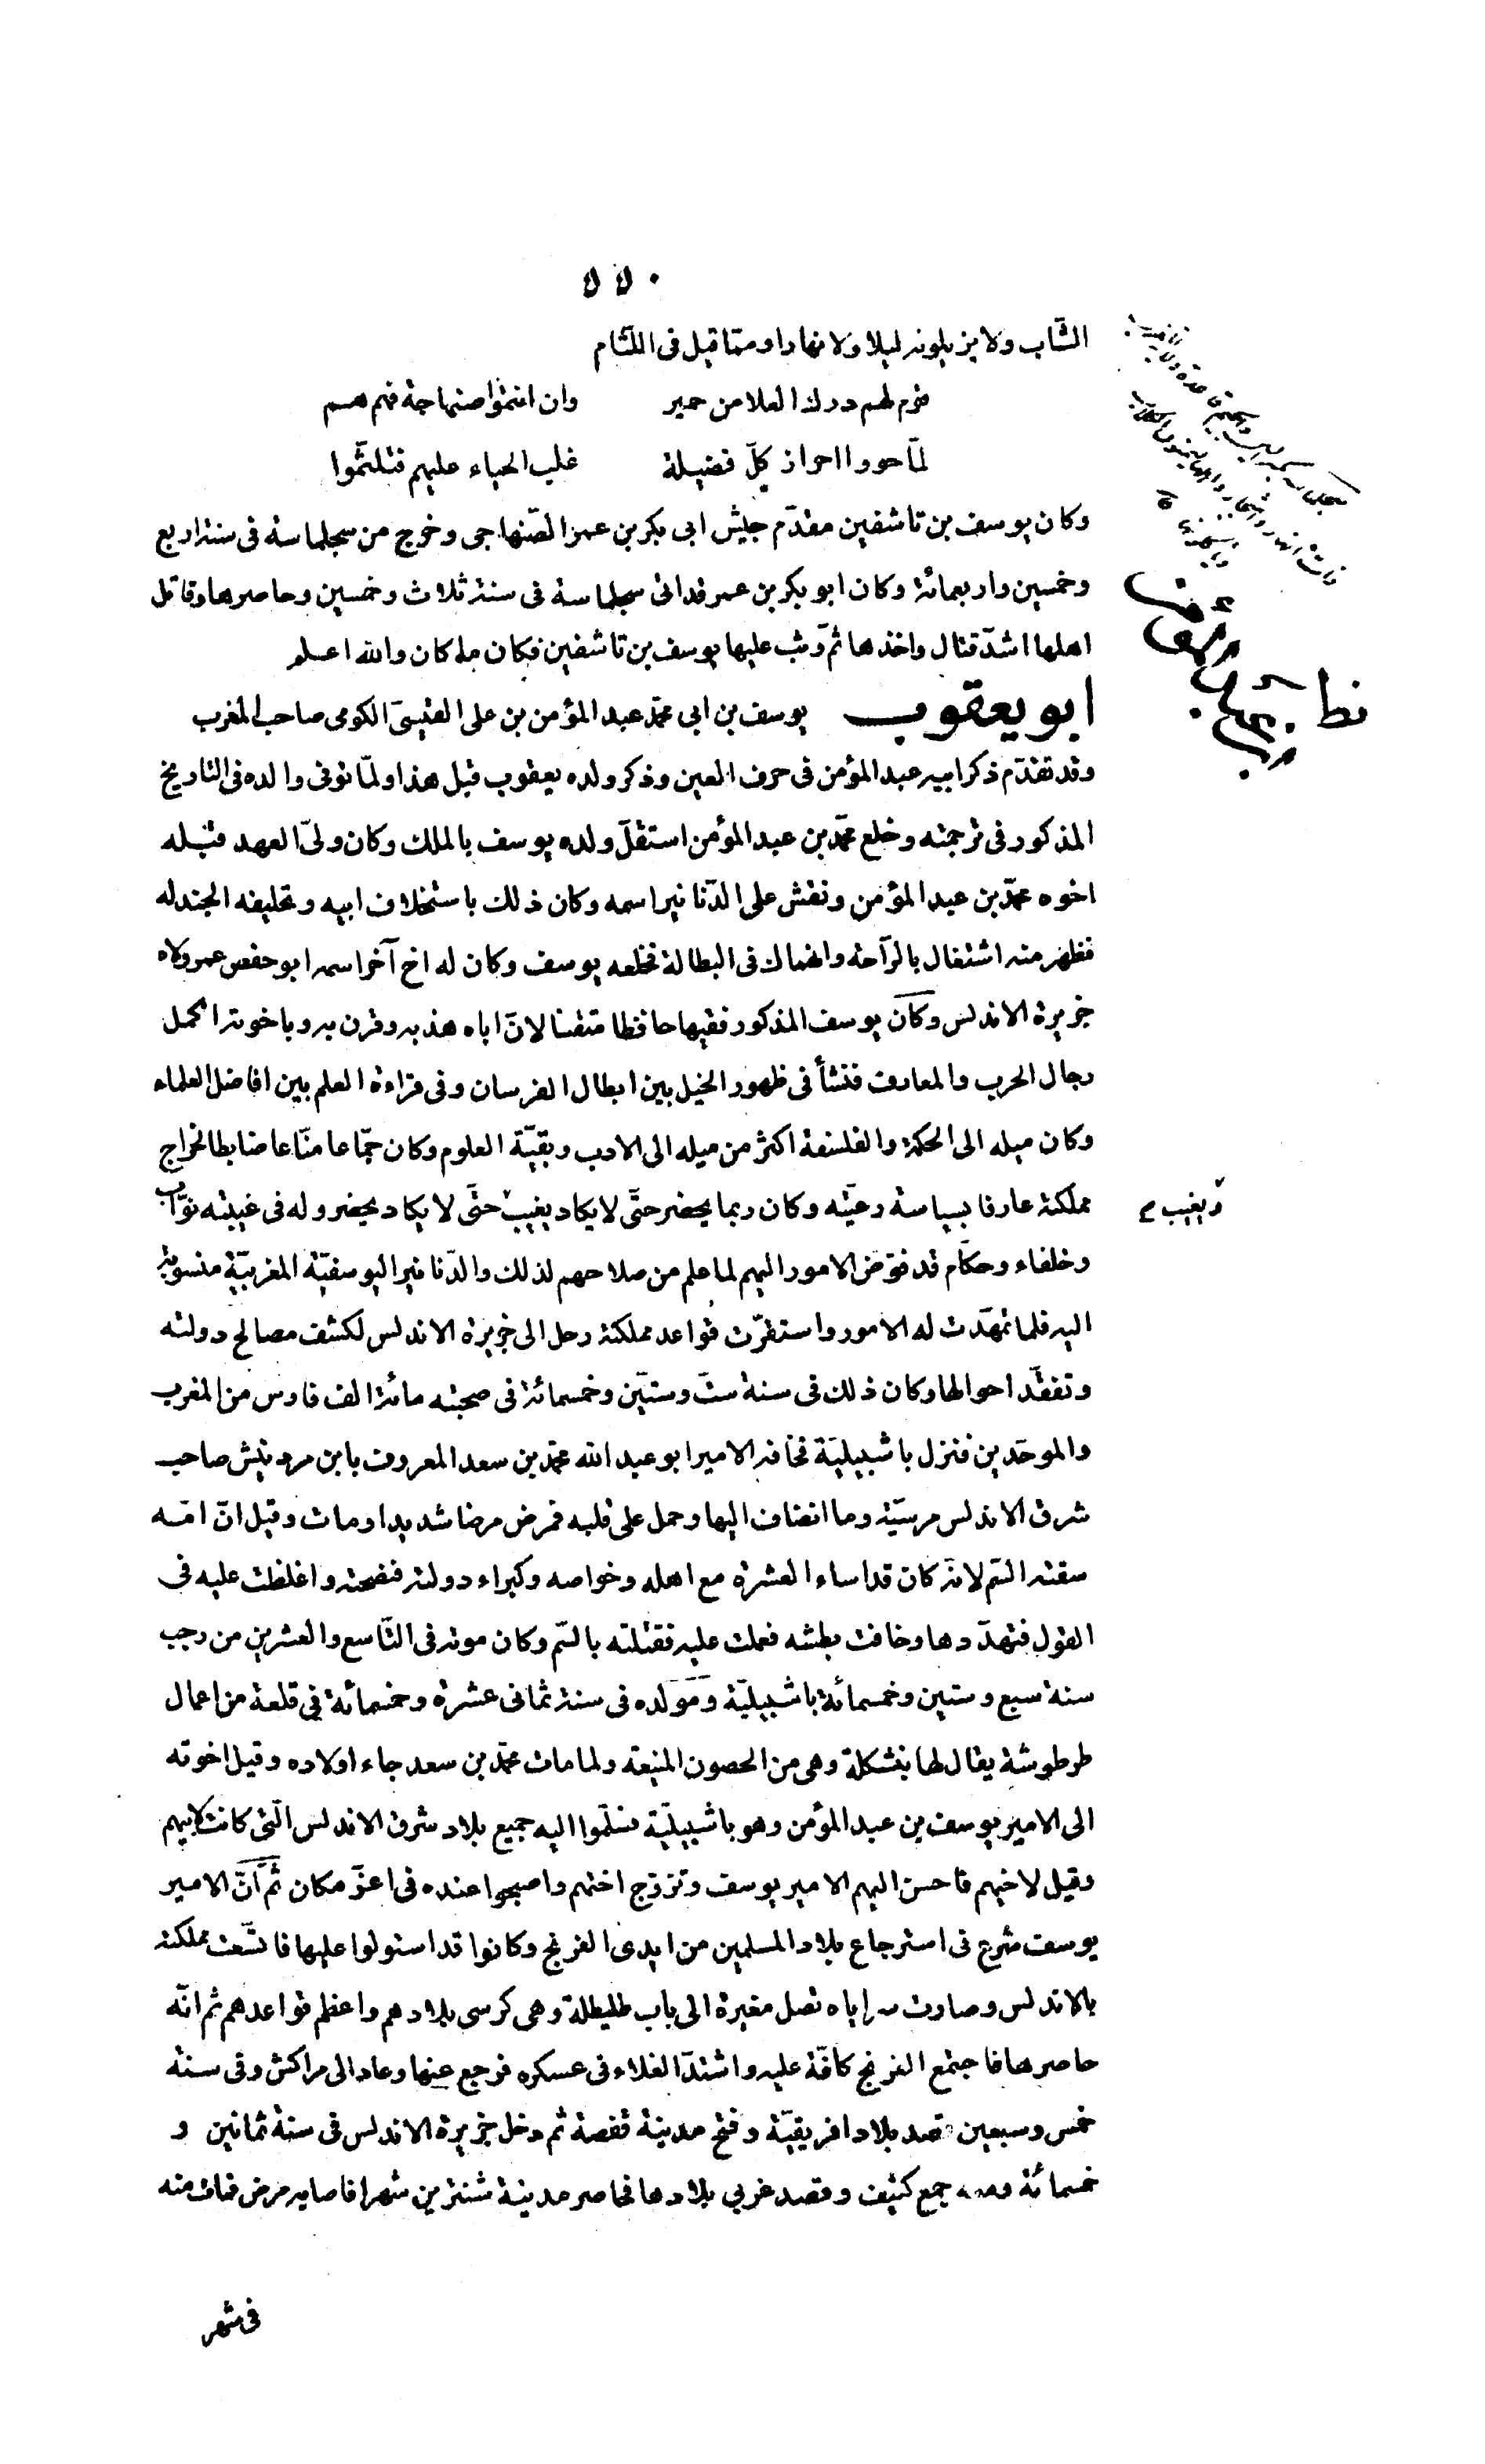 الشّاب ولا يزيلونه ليلا ولا نهارا وممّا قيل فى اللّثام
قوم لهم درك العلا من حمير وان انتموا صنهاجة فهم هم
لمّا حووا احراز كلّ فضيلة غلب الحياء عليهم فتلثّموا
وكان يوسف بن تاشفين مقدّم جيش ابى بكر بن عمر الصّنهاجى وخرج من سجلماسة فى سنة اربع
وخمسين واربعمائة وكان ابو بكر بن عمر قد اتى سجلماسة فى سنة ثلاث وخمسين وحاصرها وقاتل
اهلها اشدّ قتال واخذها ثمّ رتّب عليها يوسف بن تاشفين فكان ما كان والله اعلم
ابو يعقوب يوسف بن ابى محمّد عبد المؤمن بن على القيسىّ الكومى صاحب المغرب
وقد تقدّم ذكر ابيه عبد المؤمن فى حرف العين وذكر ولده يعقوب قبل هذا ولمّا توفى والده فى التاريخ
المذكور فى ترجمته وخلع محمّد بن عبد المؤمن استقلّ ولده يوسف بالملك وكان ولىّ العهد قبله
اخوه محمّد بن عبد المؤمن ونقش على الدّنانير اسمه وكان ذلك باستخلاف ابيه وتحليفه الجند له
فظهر منه اشتغال بالرّاحة وانهماك فى البطالة فخلعه يوسف وكان له اخ آخر اسمه ابو حفص عمر ولاه
جزيرة الاندلس وكان يوسف المذكور فقيها حافظا متقنا لانّ اباه هذبه وقرن به وباخوته اكمل
رجال الحرب والمعارف فنشأ فى ظهور الخيل بين ابطال الفرسان وفى قراءة العلم بين افاضل العلماء
وكان ميله الى الحكمة والفلسفة اكثر من ميله الى الادب وبقيّة العلوم وكان جمّاعا منّاعا ضابطا لخراج
مملكته عارفا بسياسة رعيّته وكان ربما يحضر حتّى لا يكاد يغيب حتّى لا يكاد يحضر وله فى غيبته نوّاب
ويغيب
وخلفاء وحكّام قد فوّض الامور اليهم لما علم من صلاحهم لذلك والدّنانير اليوسفيّة المغربيّة منسوبة
اليه فلما تمهّدت له الامور واستقرّت قواعد مملكته رحل الى جزيرة الاندلس لكشف مصالح دولته
وتفقّد احوالها وكان ذلك فى سنة ستّ وستّين وخمسمائة فى صحبته مائة الف فارس من المغرب
والموحّدين فنزل باشبيليّة فخافه الامير ابو عبد الله محمّد بن سعد المعروف بابن مردنيش صاحب
شرق الاندلس مرسيّة وما انضاف اليها وحمل على قلبه فمرض مرضا شديدا ومات وقيل انّ امّه
سقته السّم لانه كان قد اساء العشرة مع اهله وخواصه وكبراء دولته فنصحته واغلظت عليه فى
القول فتهدّدها وخافت بطشه فعملت عليه فقتلته بالسّم وكان موته فى التّاسع والعشرين من رجب
سنة سبع وستين وخمسمائة باشبيليّة ومولده فى سنة ثمانى عشرة وخمسمائة فى قلعة من اعمال
طرطوشة يقال لها بنشكلة وهى من الحصون المنيعة ولما مات محمّد بن سعد جاء اولاده وقيل اخوته
الى الامير يوسف بن عبد المؤمن وهو باشبيليّة فسلّموا اليه جميع بلاد شرق الاندلس الّتى كانت لابيهم
وقيل لاخيهم فاحسن اليهم الامير يوسف وتزوّج اختهم واصبحوا عنده فى اعزّ مكان ثمّ انّ الامير
يوسف شرع فى استرجاع بلاد المسلمين من ايدى الفرنج وكانوا قد استولوا عليها فاتّسعت مملكته
بالاندلس وصارت سراياه تصل مغيرة الى باب طليطلة وهى كرسى بلادهم واعظم قواعدهم ثم انّه
حاصرها فاجتمع الفرنج كافّة عليه واشتدّ الغلاء فى عسكره فرجع عنها وعاد الى مراكش وفى سنة
خمس وسبعين قصد بلاد افريقيّة وفتح مدينة قفصة ثم دخل جزيرة الاندلس فى سنة ثمانين و
خمسمائة ومعه جمع كثيف وقصد غربى بلادها فحاصر مدينة شنترين شهرا فاصابه مرض فمات منه
فى شهر